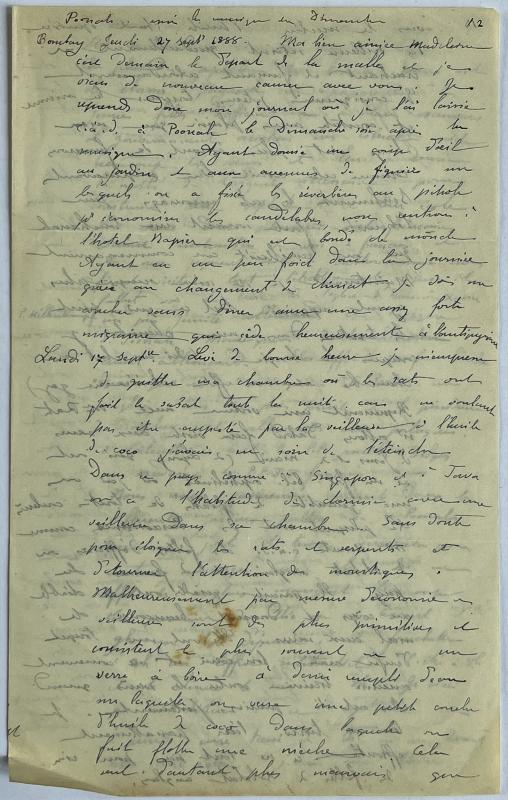 Poonah. après la musique du Dimanche 12
Bombay Jeudi 27 septe 1888. Ma bien aimée Madeleine
c'est demain le départ de la malle et je
viens de nouveau causer avec vous. Je
reprends donc mon journal où je l'ai laissé
c.à.d. à Poonah le Dimanche soir après la
musique. Ayant donné un coup d'œil
au jardin et aux avenues de figuiers sur
lesquels on a fixé les réverbères
pr économiser les candélabres, nous rentrons à
l'hotel Napier qui est bondé de monde
Ayant eu un peu froid dans la journée
grâce au changement de climat je dois me
coucher sans dîner avec une assez forte
migraine qui cède heureusement à l'antipyrine
Lundi 17 septbre Levé de bonne heure je m'empresse
de quitter ma chambre où les rats ont
fait le sabat toute la nuit car ne voulant
pas être empesté par la veilleuse à l'huile
de coco j'avais eu soin de l'éteindre
Dans ce pays comme à Singapore et à Java
on a l'habitude de dormir avec une
veilleuse dans sa chambre sans doute
pour éloigner les rats et serpents et
détourner l'attention des moustiques.
Malheureusement par mesure d'économie ces
veilleuses sont des plus primitives et
consistent le plus souvent en un
verre à boire à demi rempli d'eau
sur laquelle on verse une petite couche
d'huile de coco dans laquelle on
fait flotter une mèche. Cela
sent d'autant plus mauvais que